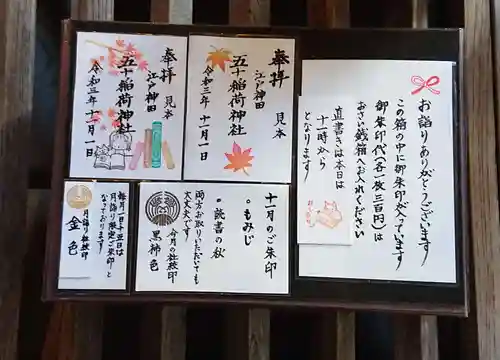 奉拝
見本
江戸神田
五十稲荷神社
令和三年十一月一日
奉拝
見本
江戸神田
五十稲荷神社
令和三年十一月一日
お詣りありがとうございます
この箱の中に御朱印が入っています
御朱印代(各一枚三百円)は
おさい銭箱へお入れください
直書きは本日は
十一時から
となります
毎月一日十五日は
月詣り限定ご朱印と
なっております
月詣り社紋印
金色
今月の社紋印
黒柿色
十一月のご朱印
。もみじ
。読書の秋
両方お取りいただいても
大丈夫です